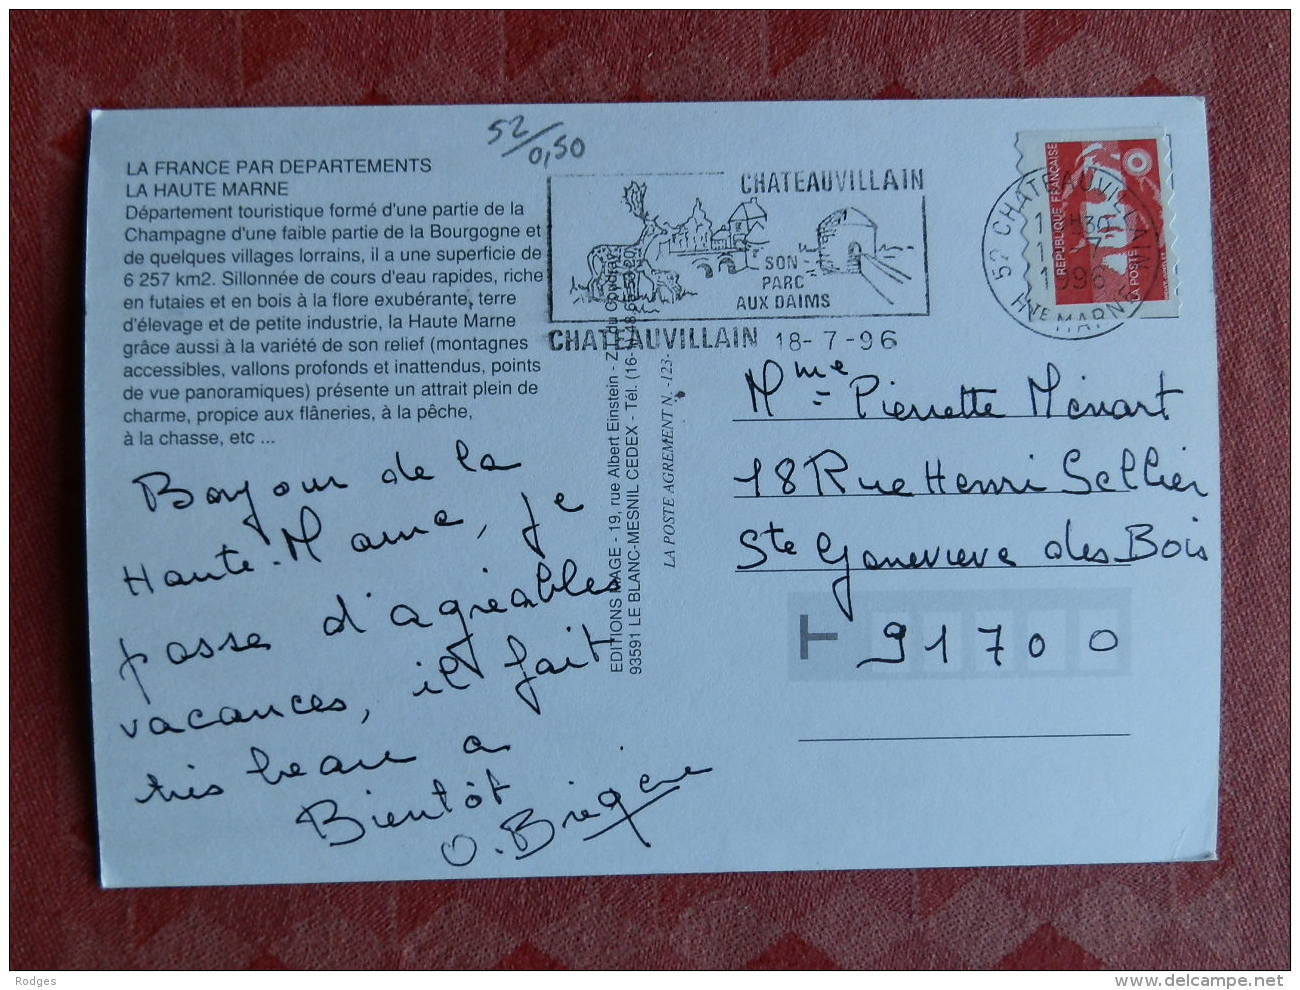 52/0,50
LA FRANCE PAR DEPARTEMENTS
LA HAUTE MARNE
Département touristique formé d'une partie de la
Champagne d'une faible partie de la Bourgogne et
de quelques villages lorrains, il a une superficie de
6 257 km2. Sillonnée de cours d'eau rapides, riche
en futaies et en bois à la flore exubérante, terre
d'élevage et de petite industrie, la Haute Marne
grâce aussi à la variété de son relief (montagnes
accessibles, vallons profonds et inattendus, points
de vue panoramiques) présente un attrait plein de
charme, propice aux flâneries, à la pêche,
à la chasse, etc ...
Bonjour de la
Haute-Marne, je
passe d'agréables
vacances, il fait
très beau a
Bientôt
EDITIONS MAGE - 19, rue Albert Einstein - Z.I. du Coudray
93591 LE BLANC-MESNIL CEDEX - Tél.
LA POSTE AGREMENT N. -123-
CHATEAUVILLAIN
SON
PARC
AUX DAIMS
CHATEAUVILLAIN 18-7-96
52 CHATEAUVILLAIN
1996
HTE MARNE
REPUBLIQUE FRANÇAISE
LA POSTE
Mme Pierrette Ménart
18 Rue Henri Sellier
Ste Genevieve des Bois
T 91700
Rodges
www.delcampe.net